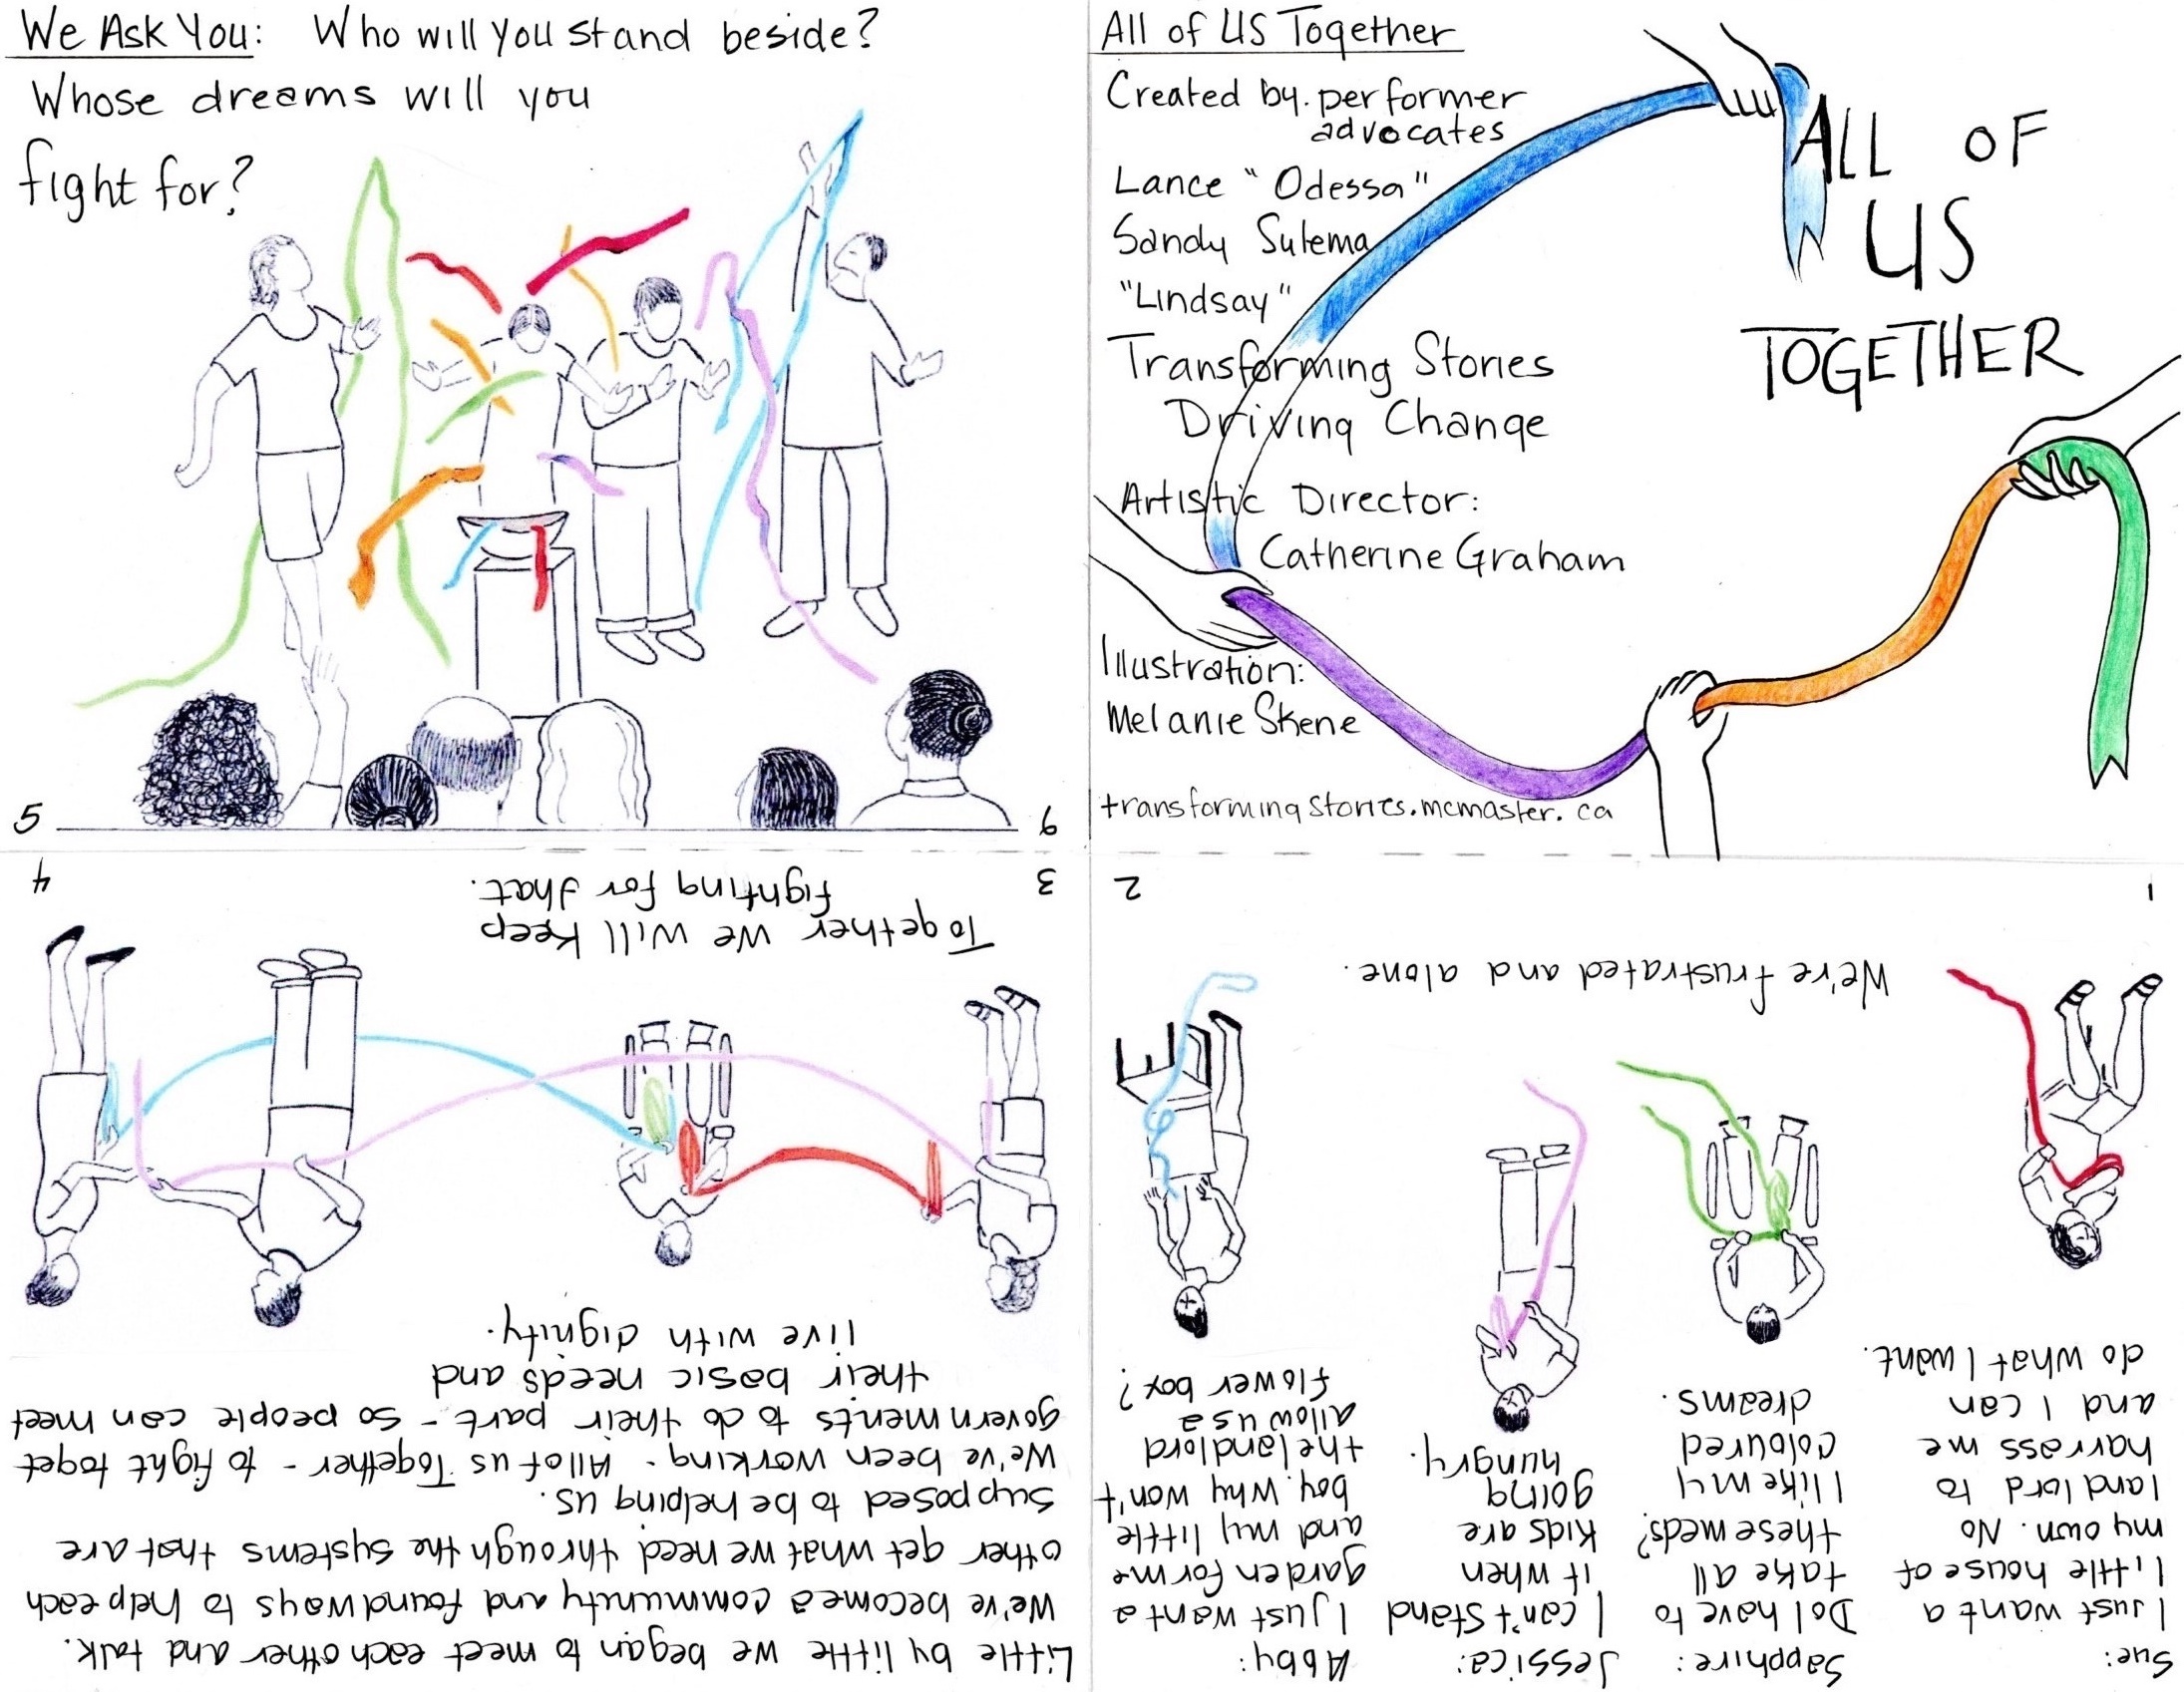 We Ask You: Who will you stand beside?
Whose dreams will you
fight for?
5
6
All of US Together
Created by. performer
advocates
Lance "Odessa"
Sandy Sulema
"Lindsay"
Transforming Stories
Driving Change
Artistic Director:
Catherine Graham
Illustration:
Melanie Skene
transformingstories.mcmaster.ca
ALL OF
US
TOGETHER
Sue:
I just want a
little house of
my own. No
landlord to
harrass me
and I can
do what I want.
Sapphire:
Do I have to
take all
these meds?
I like my
coloured
dreams.
Jessica:
I can't stand
it when
kids are
going
hungry.
Abby:
I just want a
garden for me
and my little
boy. Why won't
the landlord
allow us a
flower box?
We're frustrated and alone.
1
2
Little by little we began to meet each other and talk.
We've become a community and found ways to help each
other get what we need through the systems that are
supposed to be helping us.
We've been working - All of us Together - to fight to get
governments to do their part - so people can meet
their basic needs and
live with dignity.
Together we will keep
fighting for that.
3
4